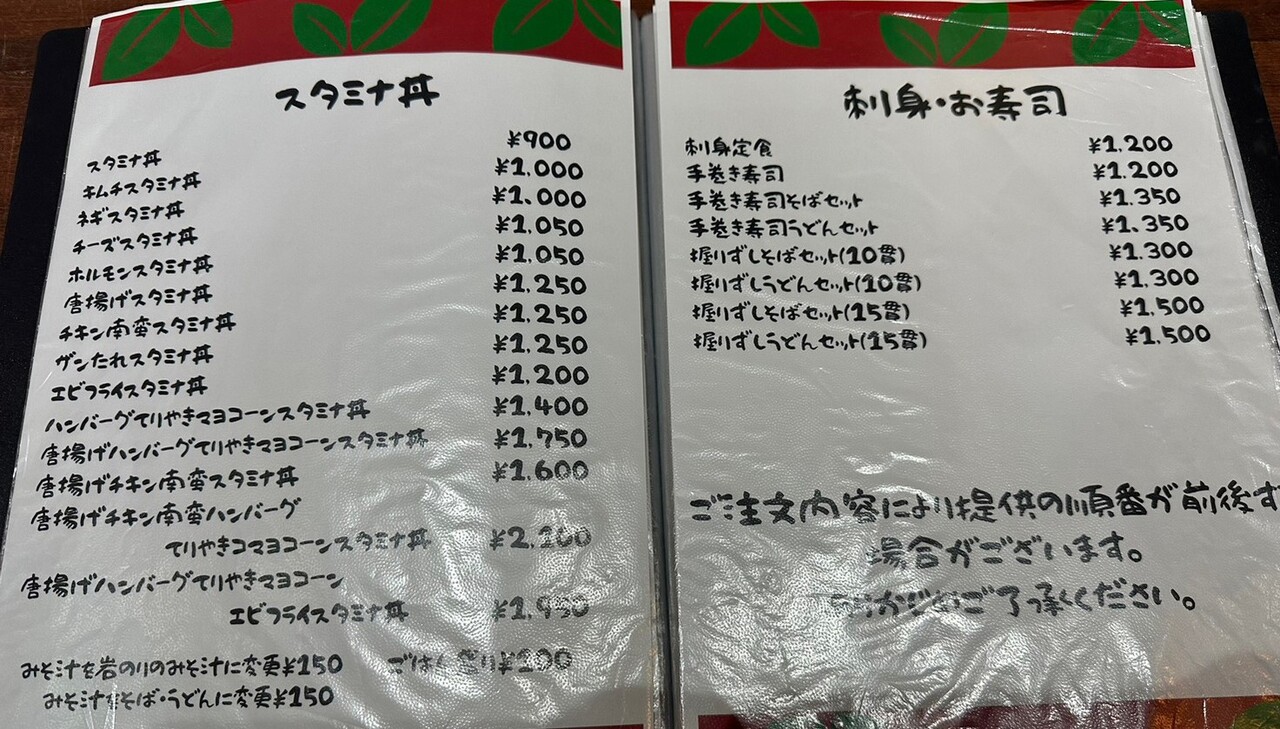 スタミナ丼
スタミナ丼 ¥900
キムチスタミナ丼 ¥1,000
ネギスタミナ丼 ¥1,000
チーズスタミナ丼 ¥1,050
ホルモンスタミナ丼 ¥1,050
唐揚げスタミナ丼 ¥1,250
チキン南蛮スタミナ丼 ¥1,250
ザンたれスタミナ丼 ¥1,250
エビフライスタミナ丼 ¥1,200
ハンバーグてりやきマヨコーンスタミナ丼 ¥1,400
唐揚げハンバーグてりやきマヨコーンスタミナ丼 ¥1,750
唐揚げチキン南蛮スタミナ丼 ¥1,600
唐揚げチキン南蛮ハンバーグ
てりやきコマヨコーンスタミナ丼
唐揚げハンバーグてりやきマヨコーン
エビフライスタミナ丼 ¥1,950
みそ汁を岩のりのみそ汁に変更¥150 ごはん盛り¥200
みそ汁をそば・うどんに変更¥150
刺身・お寿司
刺身定食 ¥1,200
手巻き寿司 ¥1,200
手巻き寿司そばセット ¥1,350
手巻き寿司うどんセット ¥1,350
握りずしそばセット(10貫) ¥1,300
握りずしうどんセット(10貫) ¥1,300
握りずしそばセット(15貫) ¥1,500
握りずしうどんセット(15貫) ¥1,500
ご注文内容により提供の順番が前後す
場合がございます。
ご了承ください。